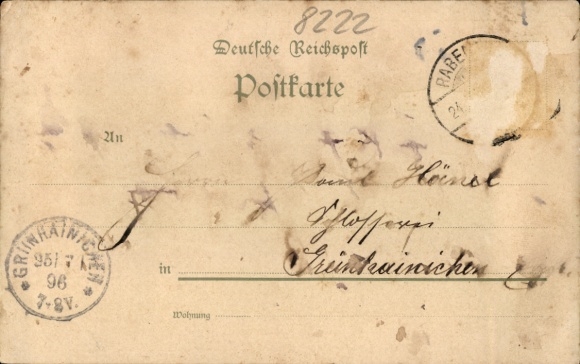 8222
Deutsche Reichspost
Postkarte
RABE
24
An
Herrn Hänel
Schlosserei
in Grünhainichen
Wohnung
GRÜNHAINICHEN
25 7
96
7-8V.